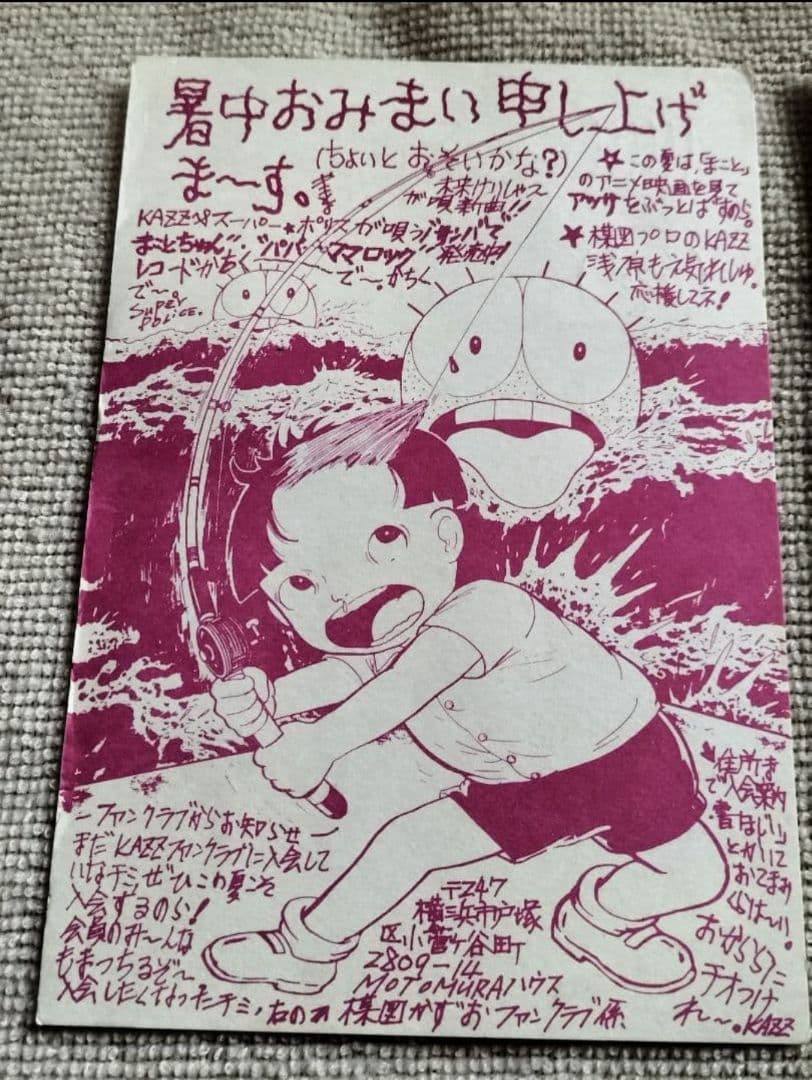 暑中おみまい申し上げ
ま〜す。
(ちょいとおそいかな?)
KAZZ&スーパー★ポリスが唄う
まことちゃん
レコードかちく
で〜
Super
Police.
サンバで
ママロック
発売中!
で〜かちく
が唄新曲!!
★この夏は、「まこと」
のアニメ映画を見て
アツサをぶっとばすのら。
★楳図プロのKAZZ
浅原も元気れしゅ。
応援してネ!
ーファンクラブからお知らせー
まだKAZZファンクラブに入会して
いなチミぜひこの夏こそ
入会するのら!
会員のみ〜んな
もまっちるぞ〜
入会したくなったチミ、右の
〒247
横浜市戸塚
区小菅ヶ谷町
2809-14
MOTOMURAハウス
楳図かずおファンクラブ係
住所ま
で「入会案内
書ほしい」
とかいて
おてまみ
くらはーい。
おかららに
チオつけ
れ〜。KAZZ